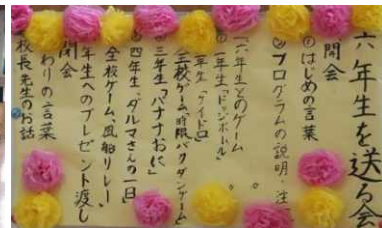 六年生を送る会
開会
①はじめの言葉
②プログラムの説明・注
「六年生とのゲーム
① 一年生「ドッジボール」
二年生「ケイドロ」
全校ゲーム「時限バクダンゲーム」
③ 三年生「バナナおに」
⑤ 四年生「ダルマさんの一日」
全校ゲーム「風船リレー」
年生へのプレゼント渡し
閉会
わりの言葉
校長先生のお話